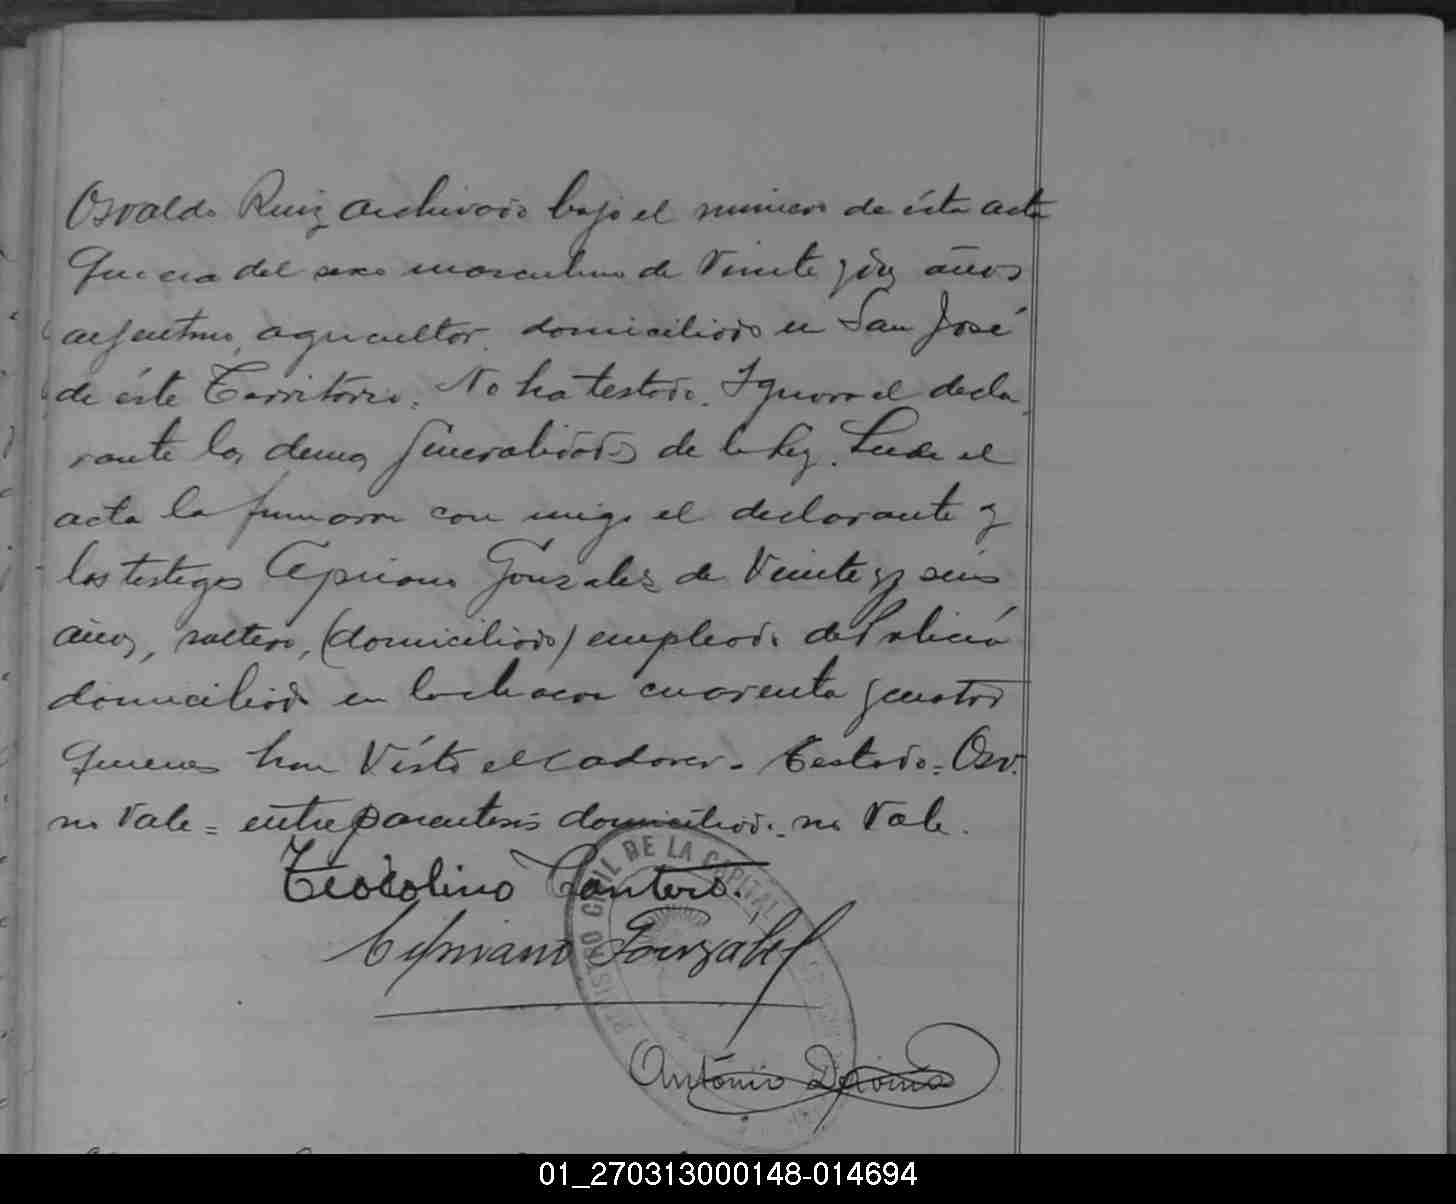 Osvaldo Ruiz archivado bajo el número de ésta acta
Que era del sexo masculino de Veinte y dos años
argentino, agricultor, domiciliado en San José
de éste Territorio. No ha testado. Ignora el decla
rante las demas generalidades de la ley. Leida el
acta la firmaron con migo el declarante y
los testigos Cipriano Gonzalez de Veinte y seis
años, soltero, (domiciliado) empleado de Policia
domiciliado en la chacra cuarenta y cuatro
Quienes han Visto el cadaver. Testado = Osv.
no Vale = entre parentesis domiciliado. no Vale.
Teodolino Cantero.
Cipriano González
Antonio
REGISTRO CIVIL DE LA CAPITAL
01_270313000148-014694